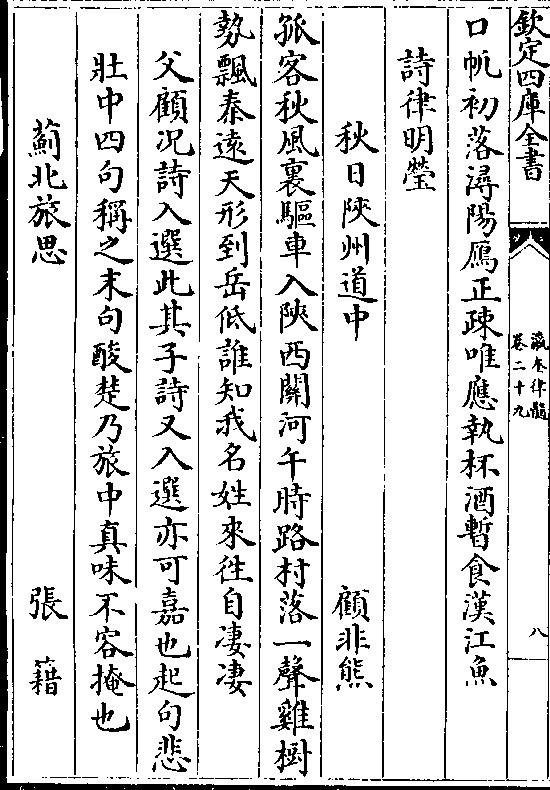 欽定四庫全書
瀛奎律髓
卷二十九
八
口帆初落潯陽鴈正疎唯應執杯酒暫食漢江魚
詩律明瑩
秋日陜州道中 顧非熊
孤客秋風裏驅車入陜西關河午時路村落一聲雞樹
勢飄秦遠天形到岳低誰知我名姓來徃自凄凄
父顧况詩入選此其子詩又入選亦可嘉也起句悲
壯中四句稱之末句酸楚乃旅中真味不容掩也
薊北旅思 張籍